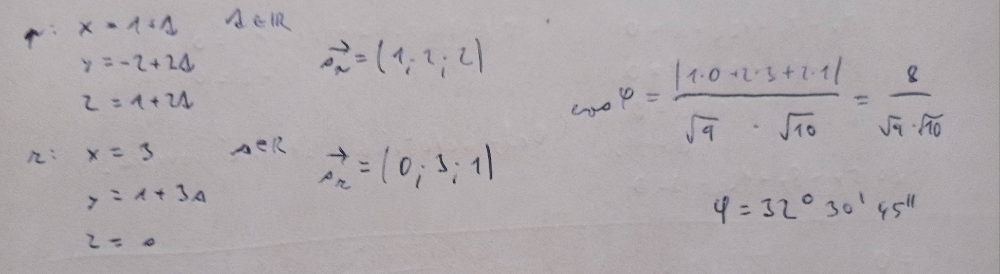 p: x = 1+s s∈ℝ
y = -2+2s
z = 1+2s
s⃗ₙ = (1; 2; 2)
r: x = 3 s∈ℝ
y = 1+3s
z = s
s⃗ᵣ = (0; 3; 1)
cos φ = |1·0+2·3+2·1| / √9 · √10 = 8 / √9·√10
φ = 32° 30' 45''